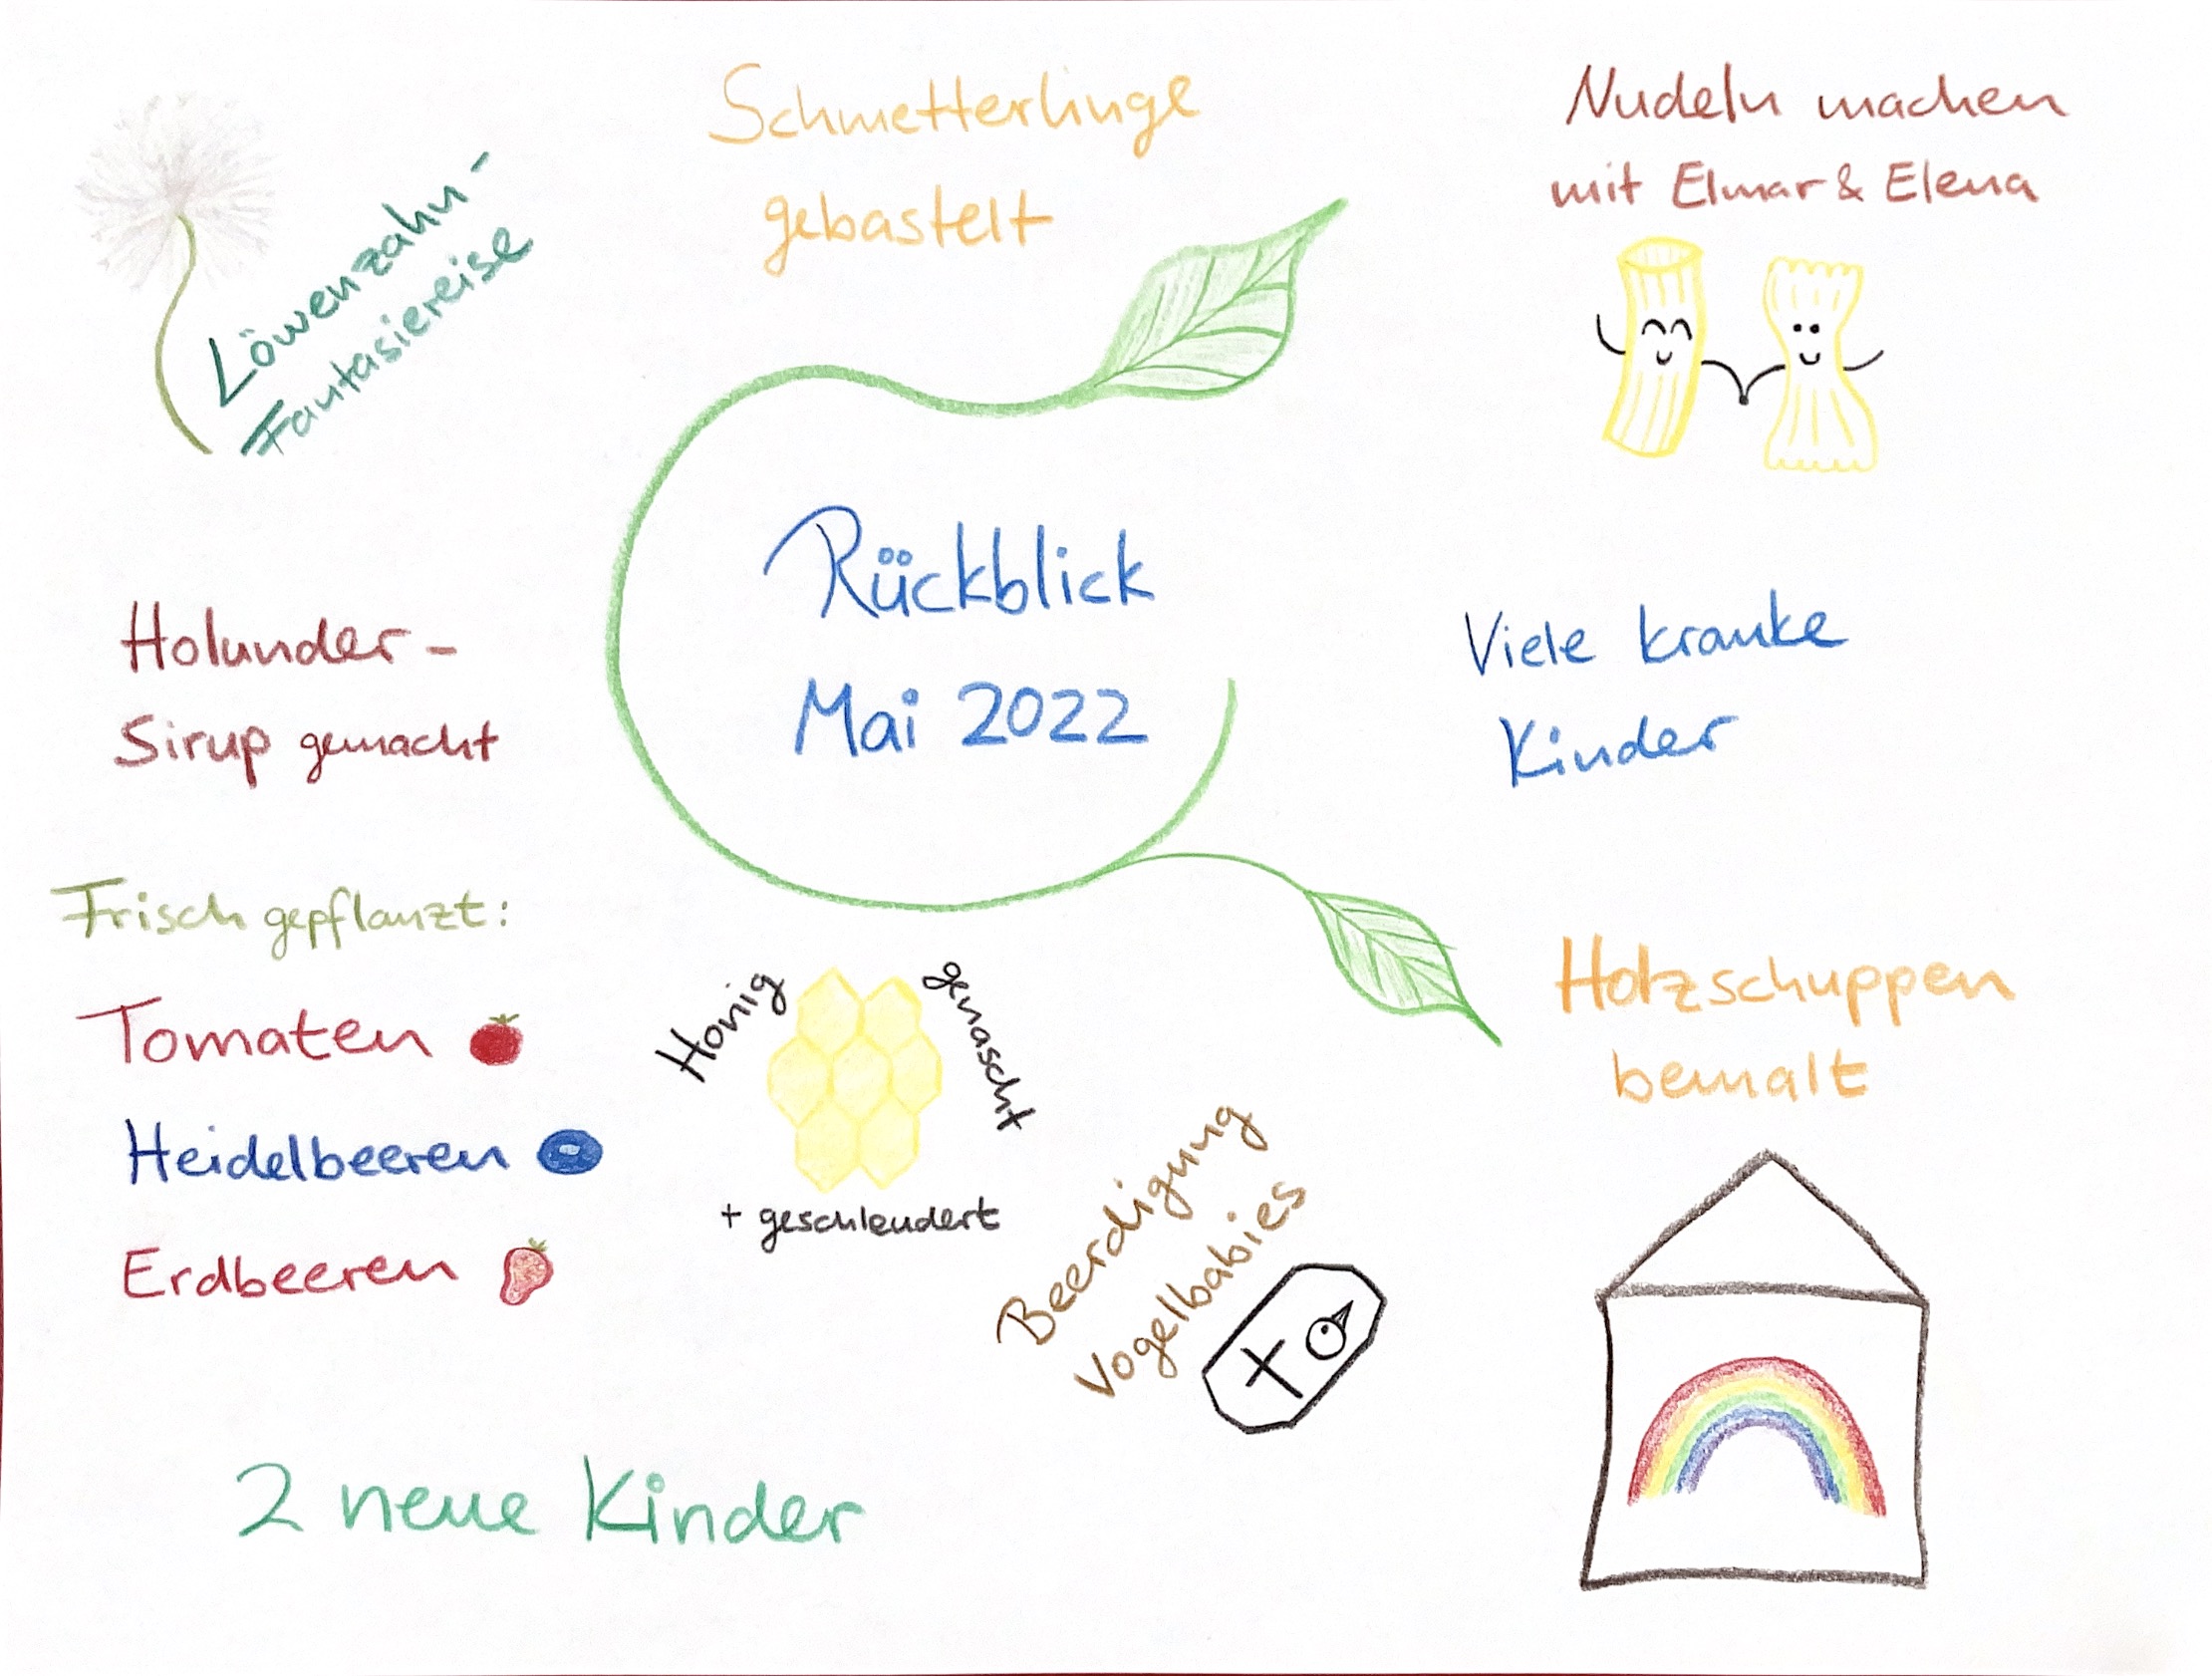 Löwenzahn-
Fantasiereise
Schmetterlinge
gebastelt
Nudeln machen
mit Elmar & Elena
Rückblick
Mai 2022
Holunder-
Sirup gemacht
Viele kranke
Kinder
Frisch gepflanzt:
Tomaten
Heidelbeeren
Erdbeeren
Honig
genascht
+ geschleudert
Beerdigung
Vogelbabies
Holzschuppen
bemalt
2 neue Kinder